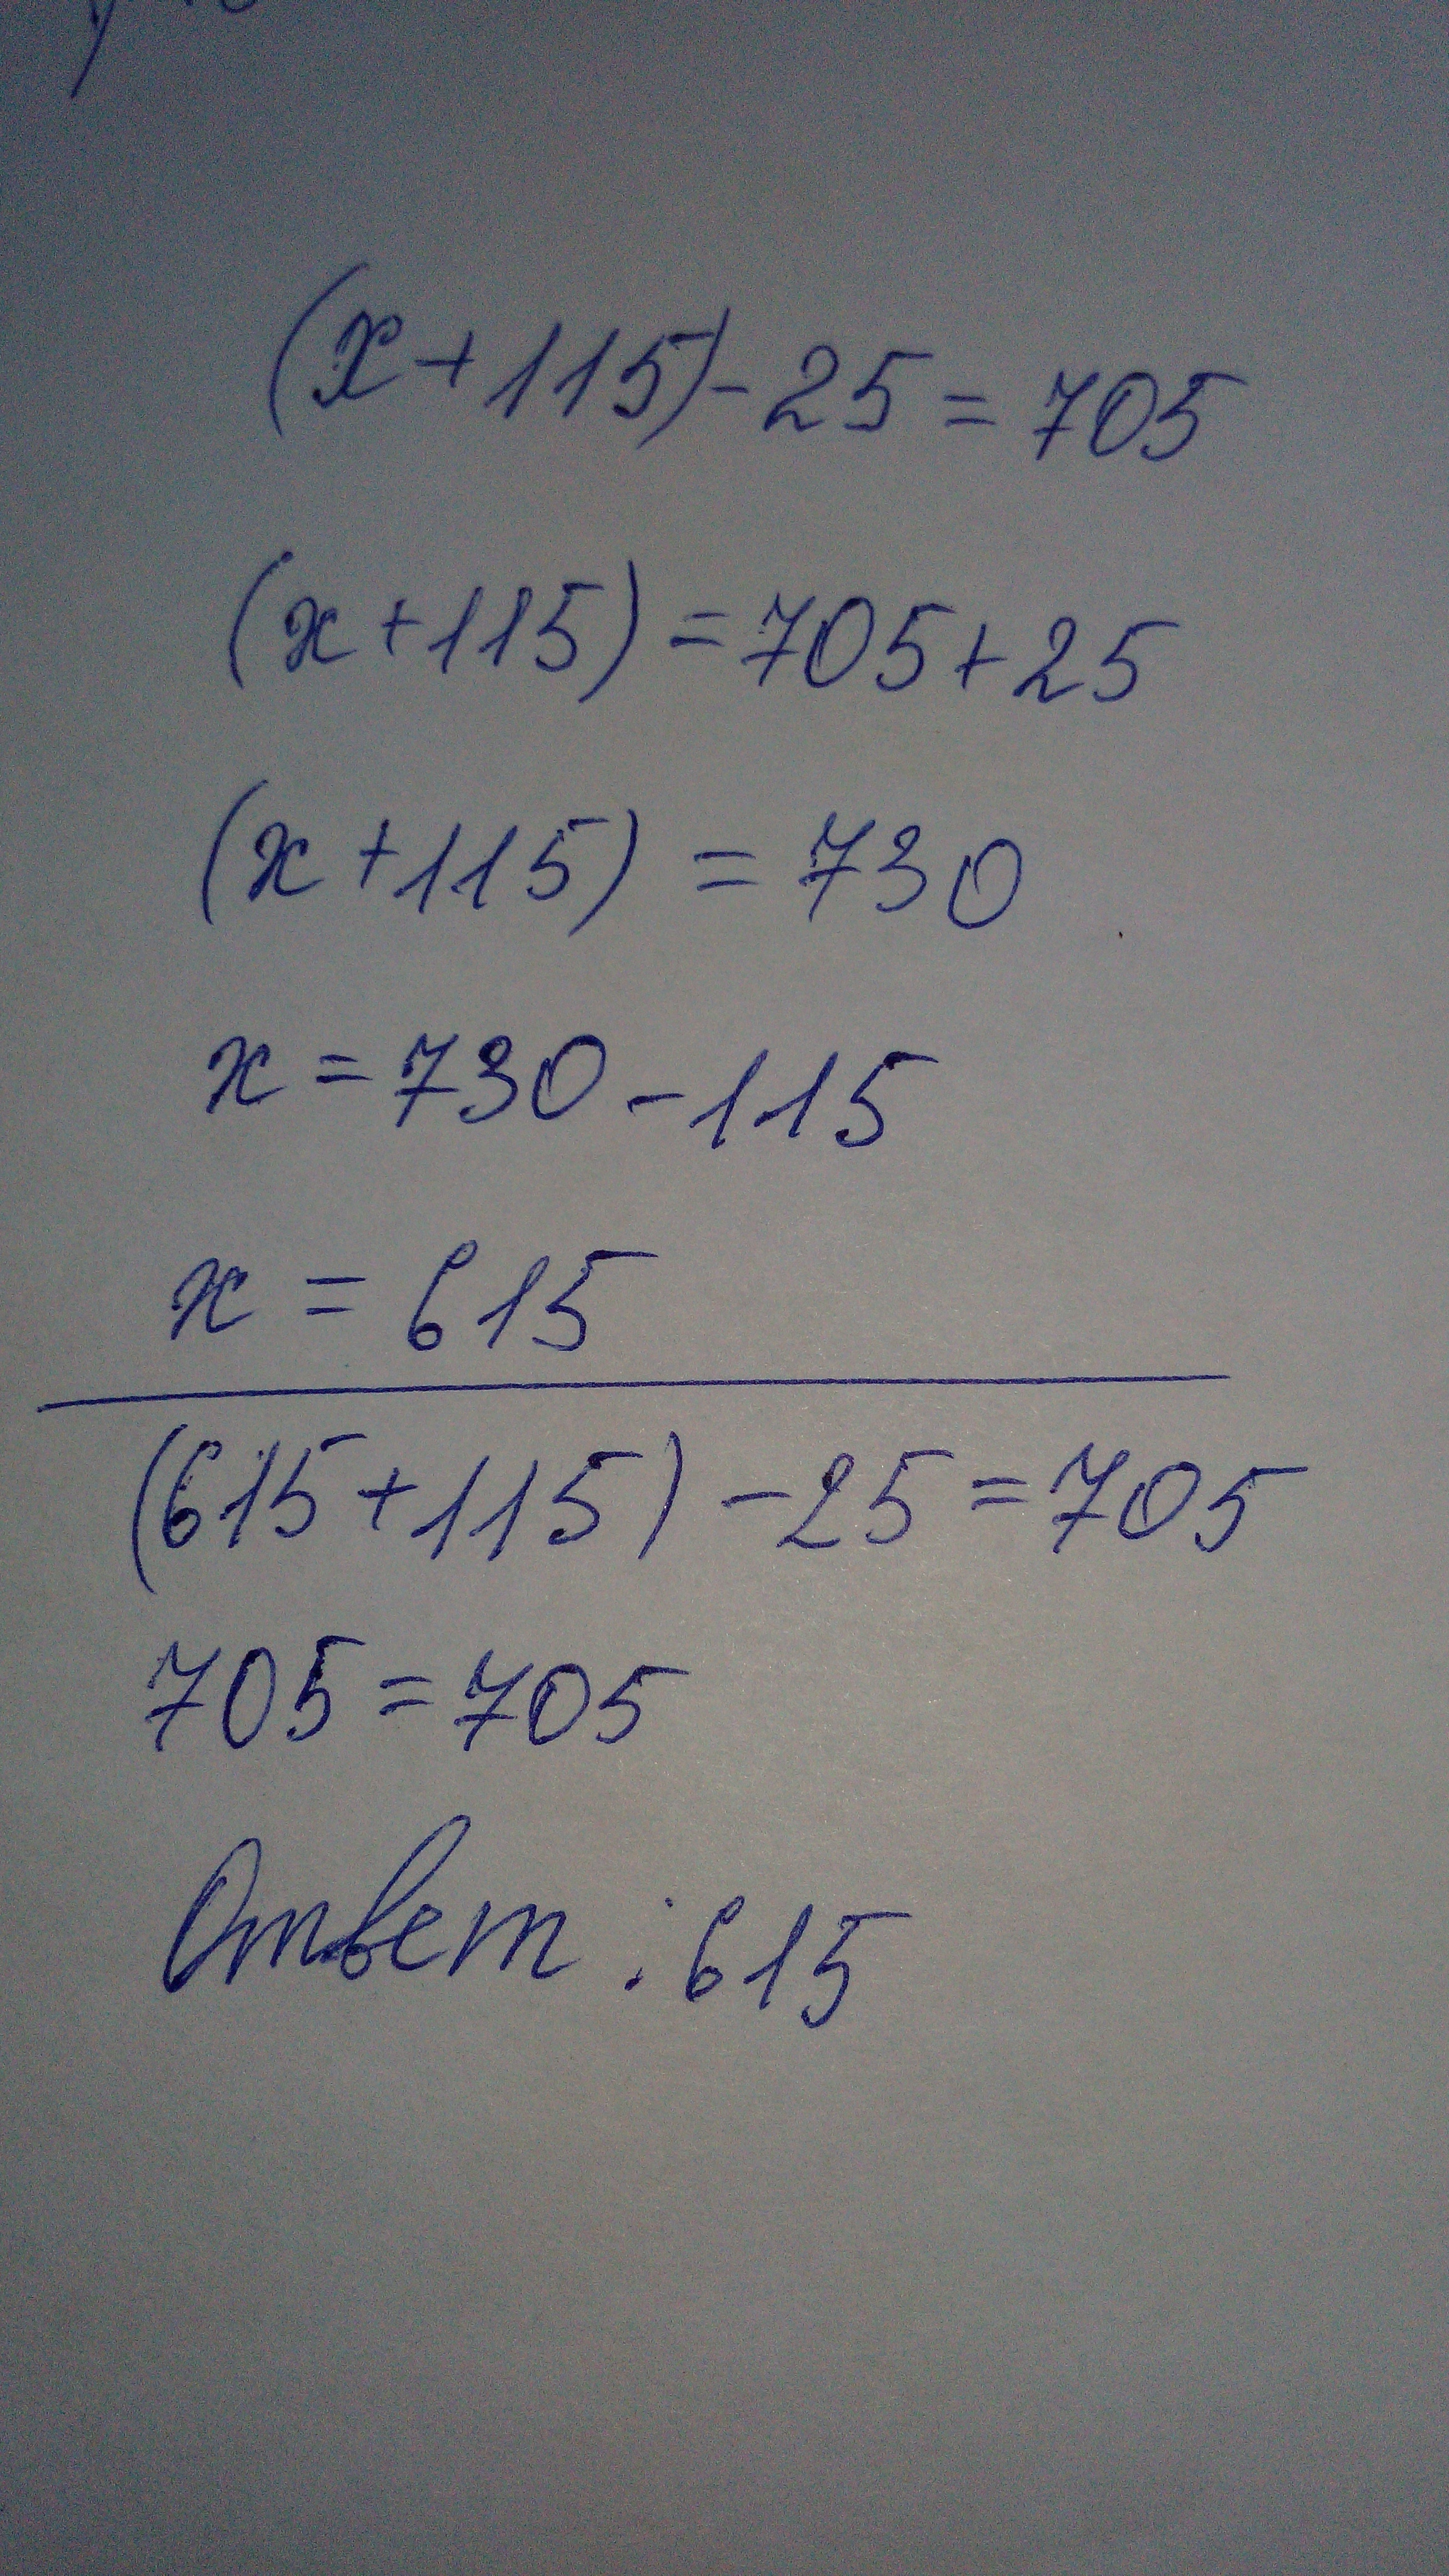 (x+115)-25=705
(x+115)=705+25
(x+115)=730
x=730-115
x=615
(615+115)-25=705
705=705
Ответ:615